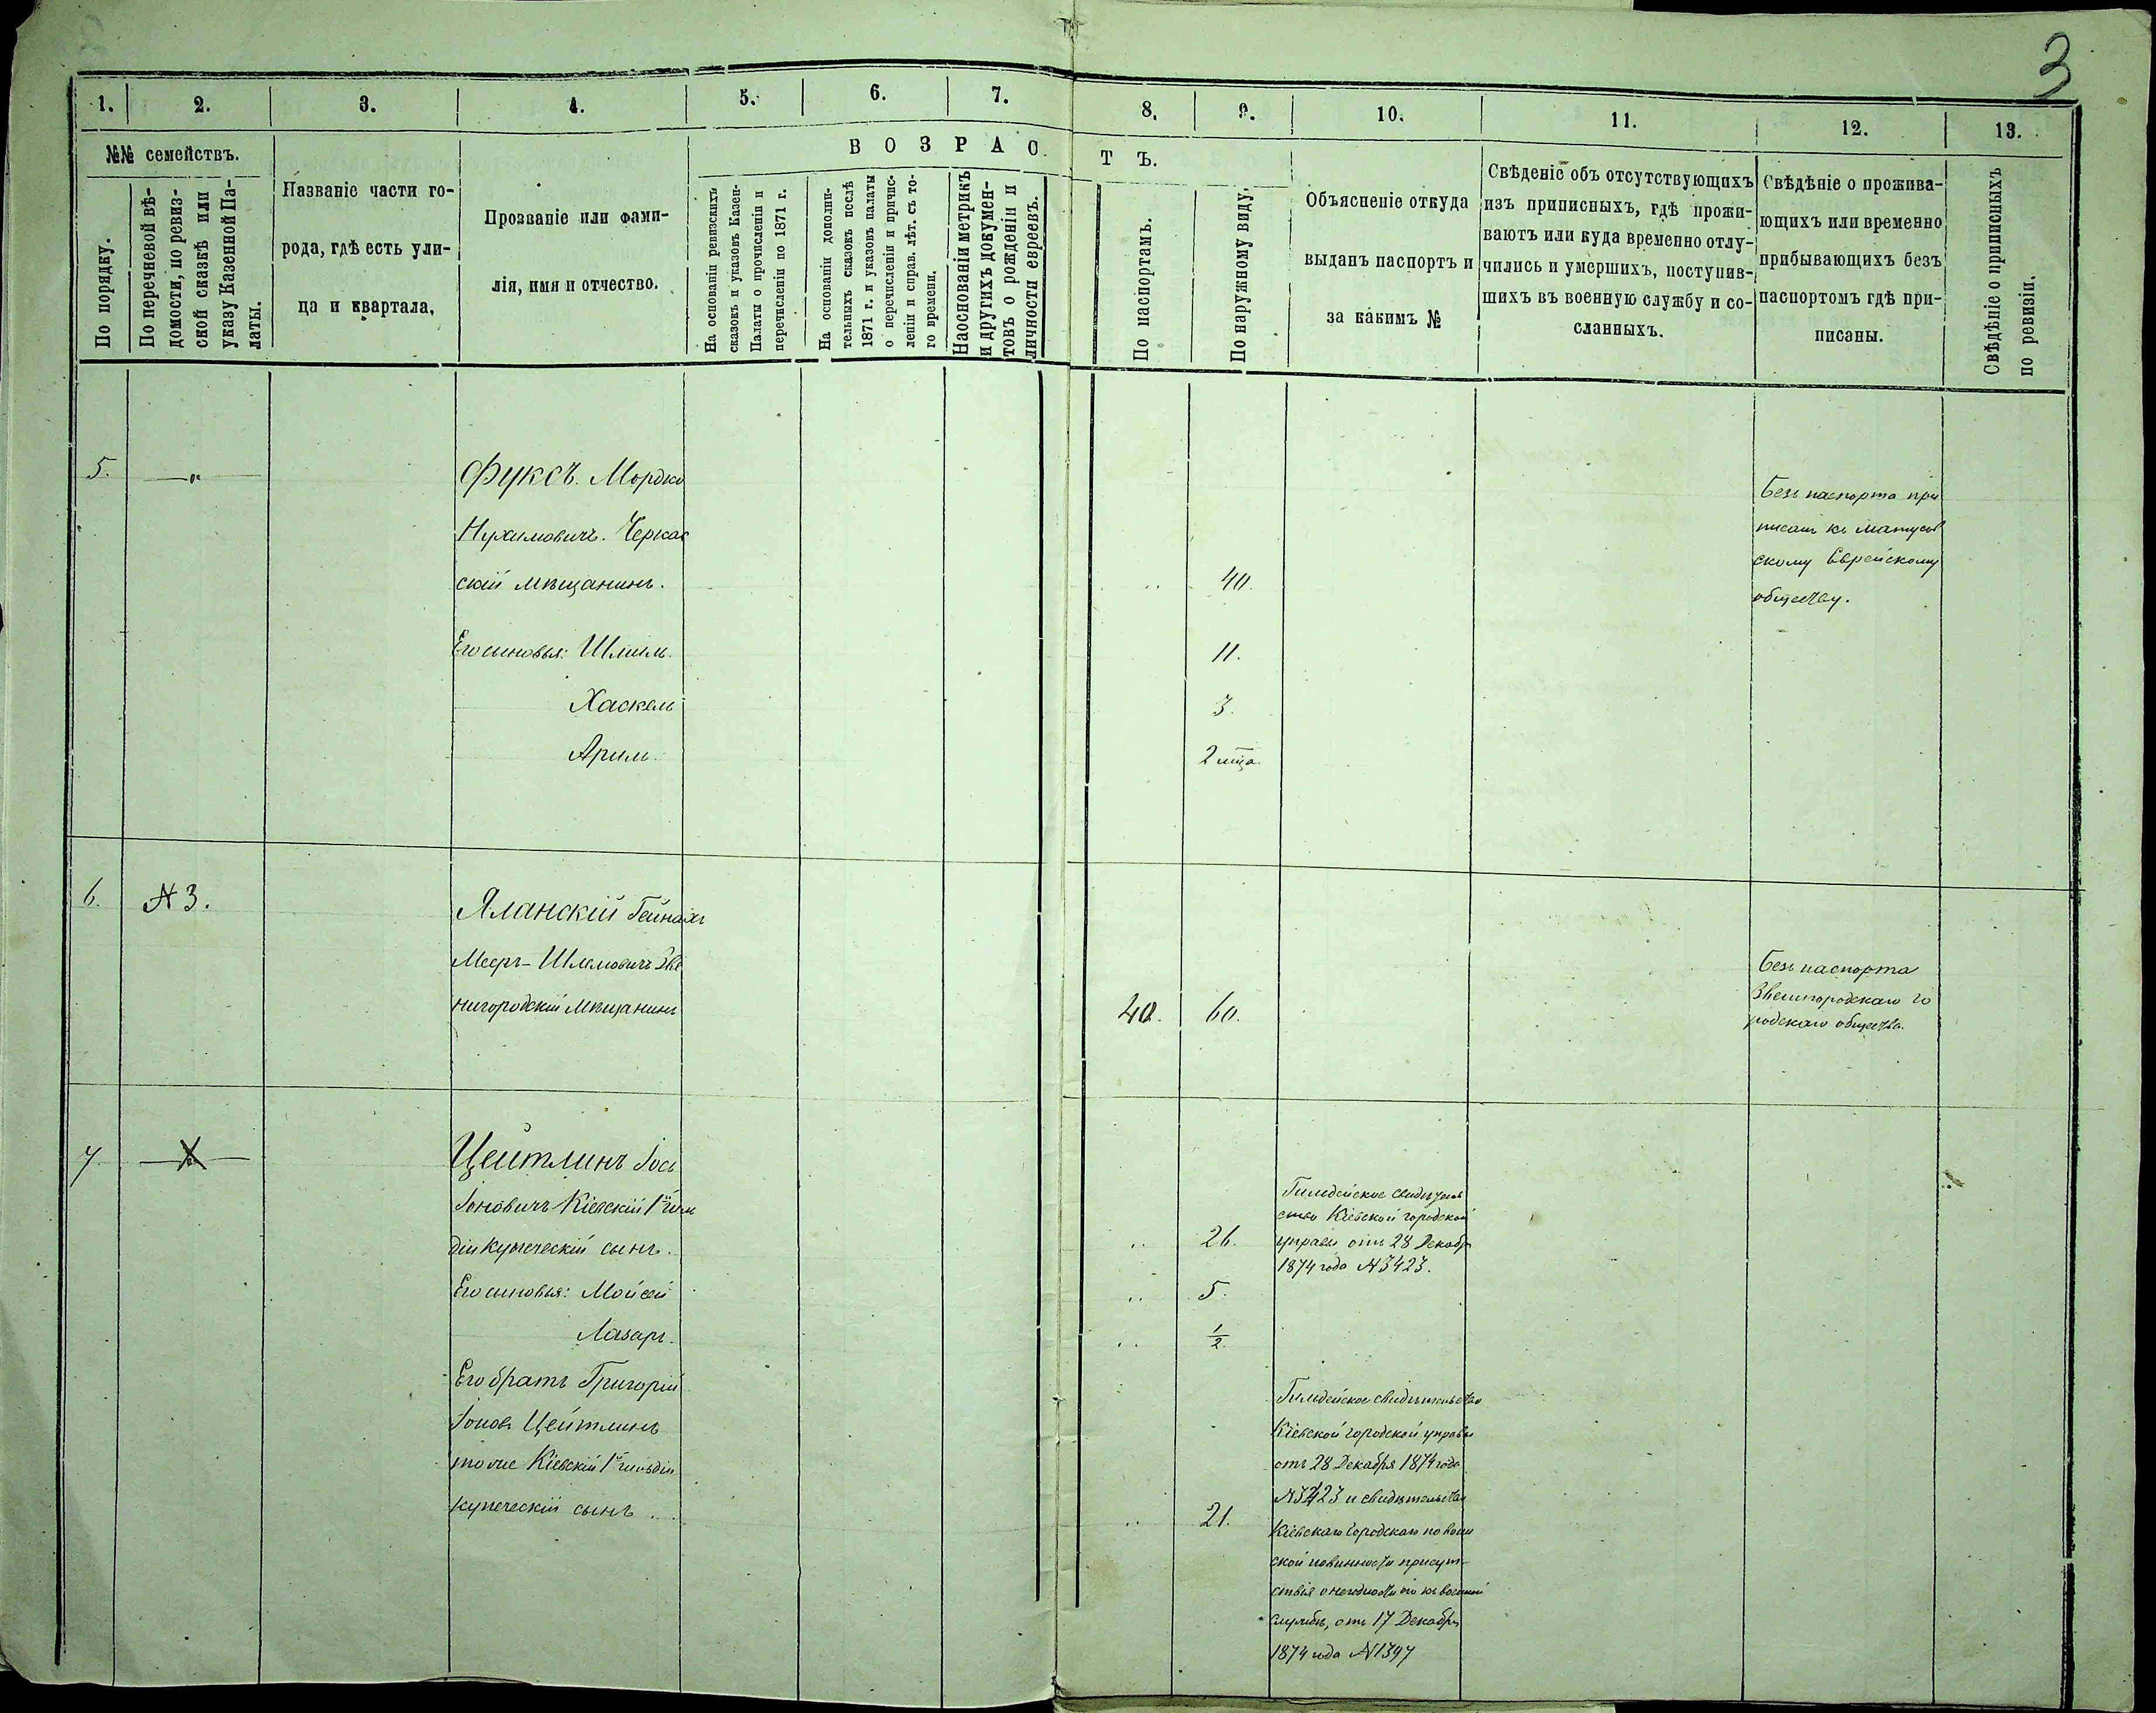 3
1. 2. 3. 4. 5. 6. 7. 8. 9. 10. 11. 12. 13.
№№ семействъ.
По порядку.
По перечневой вѣ-
домости, по ревиз-
ской сказкѣ или
указу Казенной Па-
латы.
Названіе части го-
рода, гдѣ есть ули-
ца и квартала.
Прозваніе или фами-
лія, имя и отчество.
ВОЗРАСТЪ.
На основаніи ревизскихъ
сказокъ и указовъ Казен-
Палаты о прочисленіи и
перечисленіи по 1871 г.
На основаніи дополни-
тельныхъ сказокъ послѣ
1871 г. и указовъ палаты
о перечисленіи и причис-
леніи и справ. лѣт. съ то-
го времени.
Наоснованіи метрикъ
и другихъ докумен-
товъ о рожденіи и
личности евреевъ.
По паспортамъ.
По наружному виду.
Объясненіе откуда
выданъ паспортъ и
за какимъ №
Свѣденіе объ отсутствующихъ
изъ приписныхъ, гдѣ прожи-
ваютъ или куда временно отлу-
чились и умершихъ, поступив-
шихъ въ военную службу и со-
сланныхъ.
Свѣдѣніе о прожива-
ющихъ или временно
прибывающихъ безъ
паспортомъ гдѣ при-
писаны.
Свѣдѣніе о приписныхъ
по ревизіи.
5. —"—
Фуксъ Мордко
Нухимовичъ. Черкас
скій мѣщанинъ.
40.
Его сыновья: Шмиль
11.
Хаскель
3.
Арим
2 мца
Безъ паспорта при
писанъ къ Матусов
скому Еврейскому
обществу.
6. № 3.
Яланскій Гейнахъ
Мееръ-Шлемовичъ Зве
нигородскій мѣщанинъ
40. 60.
Безъ паспорта
Звенигородскаго го
родскаго общества.
7.
Цейтлинъ Іось
Іоновичъ Кіевскій 1й гиль
діи купеческій сынъ.
26.
Его сыновья: Мойсей
5.
Лазарь.
1/2
Гильдейское свидѣтель
ство Кіевской городской
управы отъ 28 Декабр
1874 года №3423.
Его братъ Григорій
Іоновъ Цейтлинъ
тоже Кіевскій 1й гильдіи
купеческій сынъ
21.
Гильдейское свидѣтельство
Кіевской городской управы
отъ 28 Декабря 1874 года
№3423 и свидѣтельство
Кіевскаго городскаго по воин
ской повинности присут-
ствія о негодности его къ военной
службѣ, отъ 17 Декабря
1874 года №1397